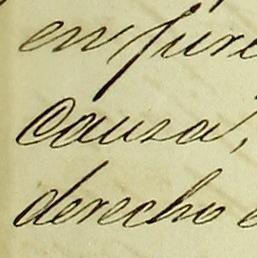 en jure
causa,
derecho e